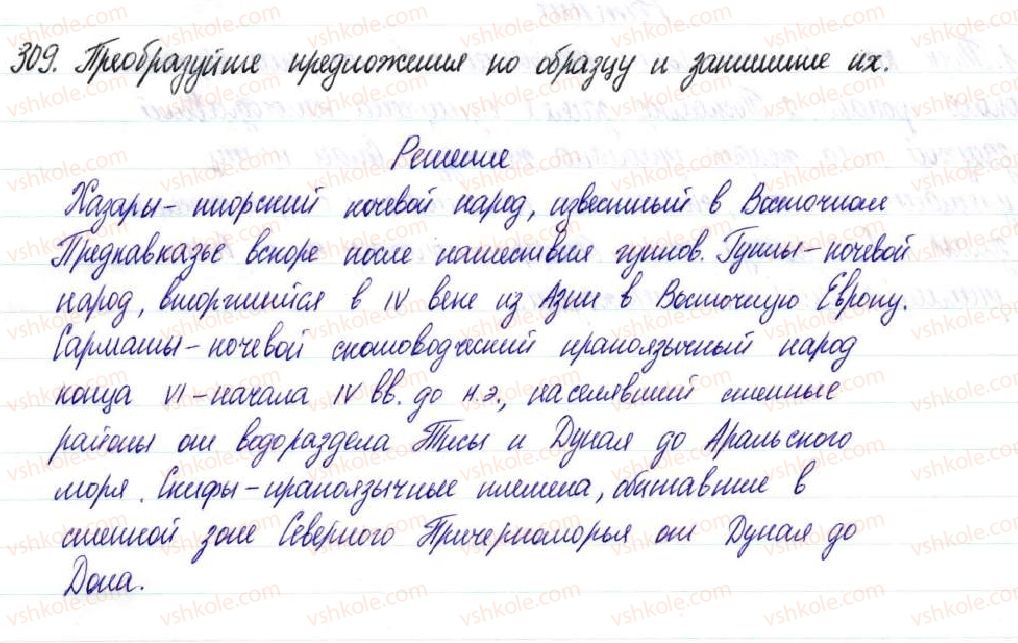 309. Преобразуйте предложения по образцу и запишите их.
Решение
Хазары – тюрский кочевой народ, известный в Восточном
Предкавказье вскоре после нашествия гуннов. Гунны – кочевой
народ, вторгшийся в IV веке из Азии в Восточную Европу.
Сарматы – кочевой скотоводческий ираноязычный народ
конца VI – начала IV вв. до н.э., населявший степные
районы от водораздела Тисы и Дуная до Аральского
моря. Скифы – ираноязычные племена, обитавшие в
степной зоне Северного Причерноморья от Дуная до
Дона.